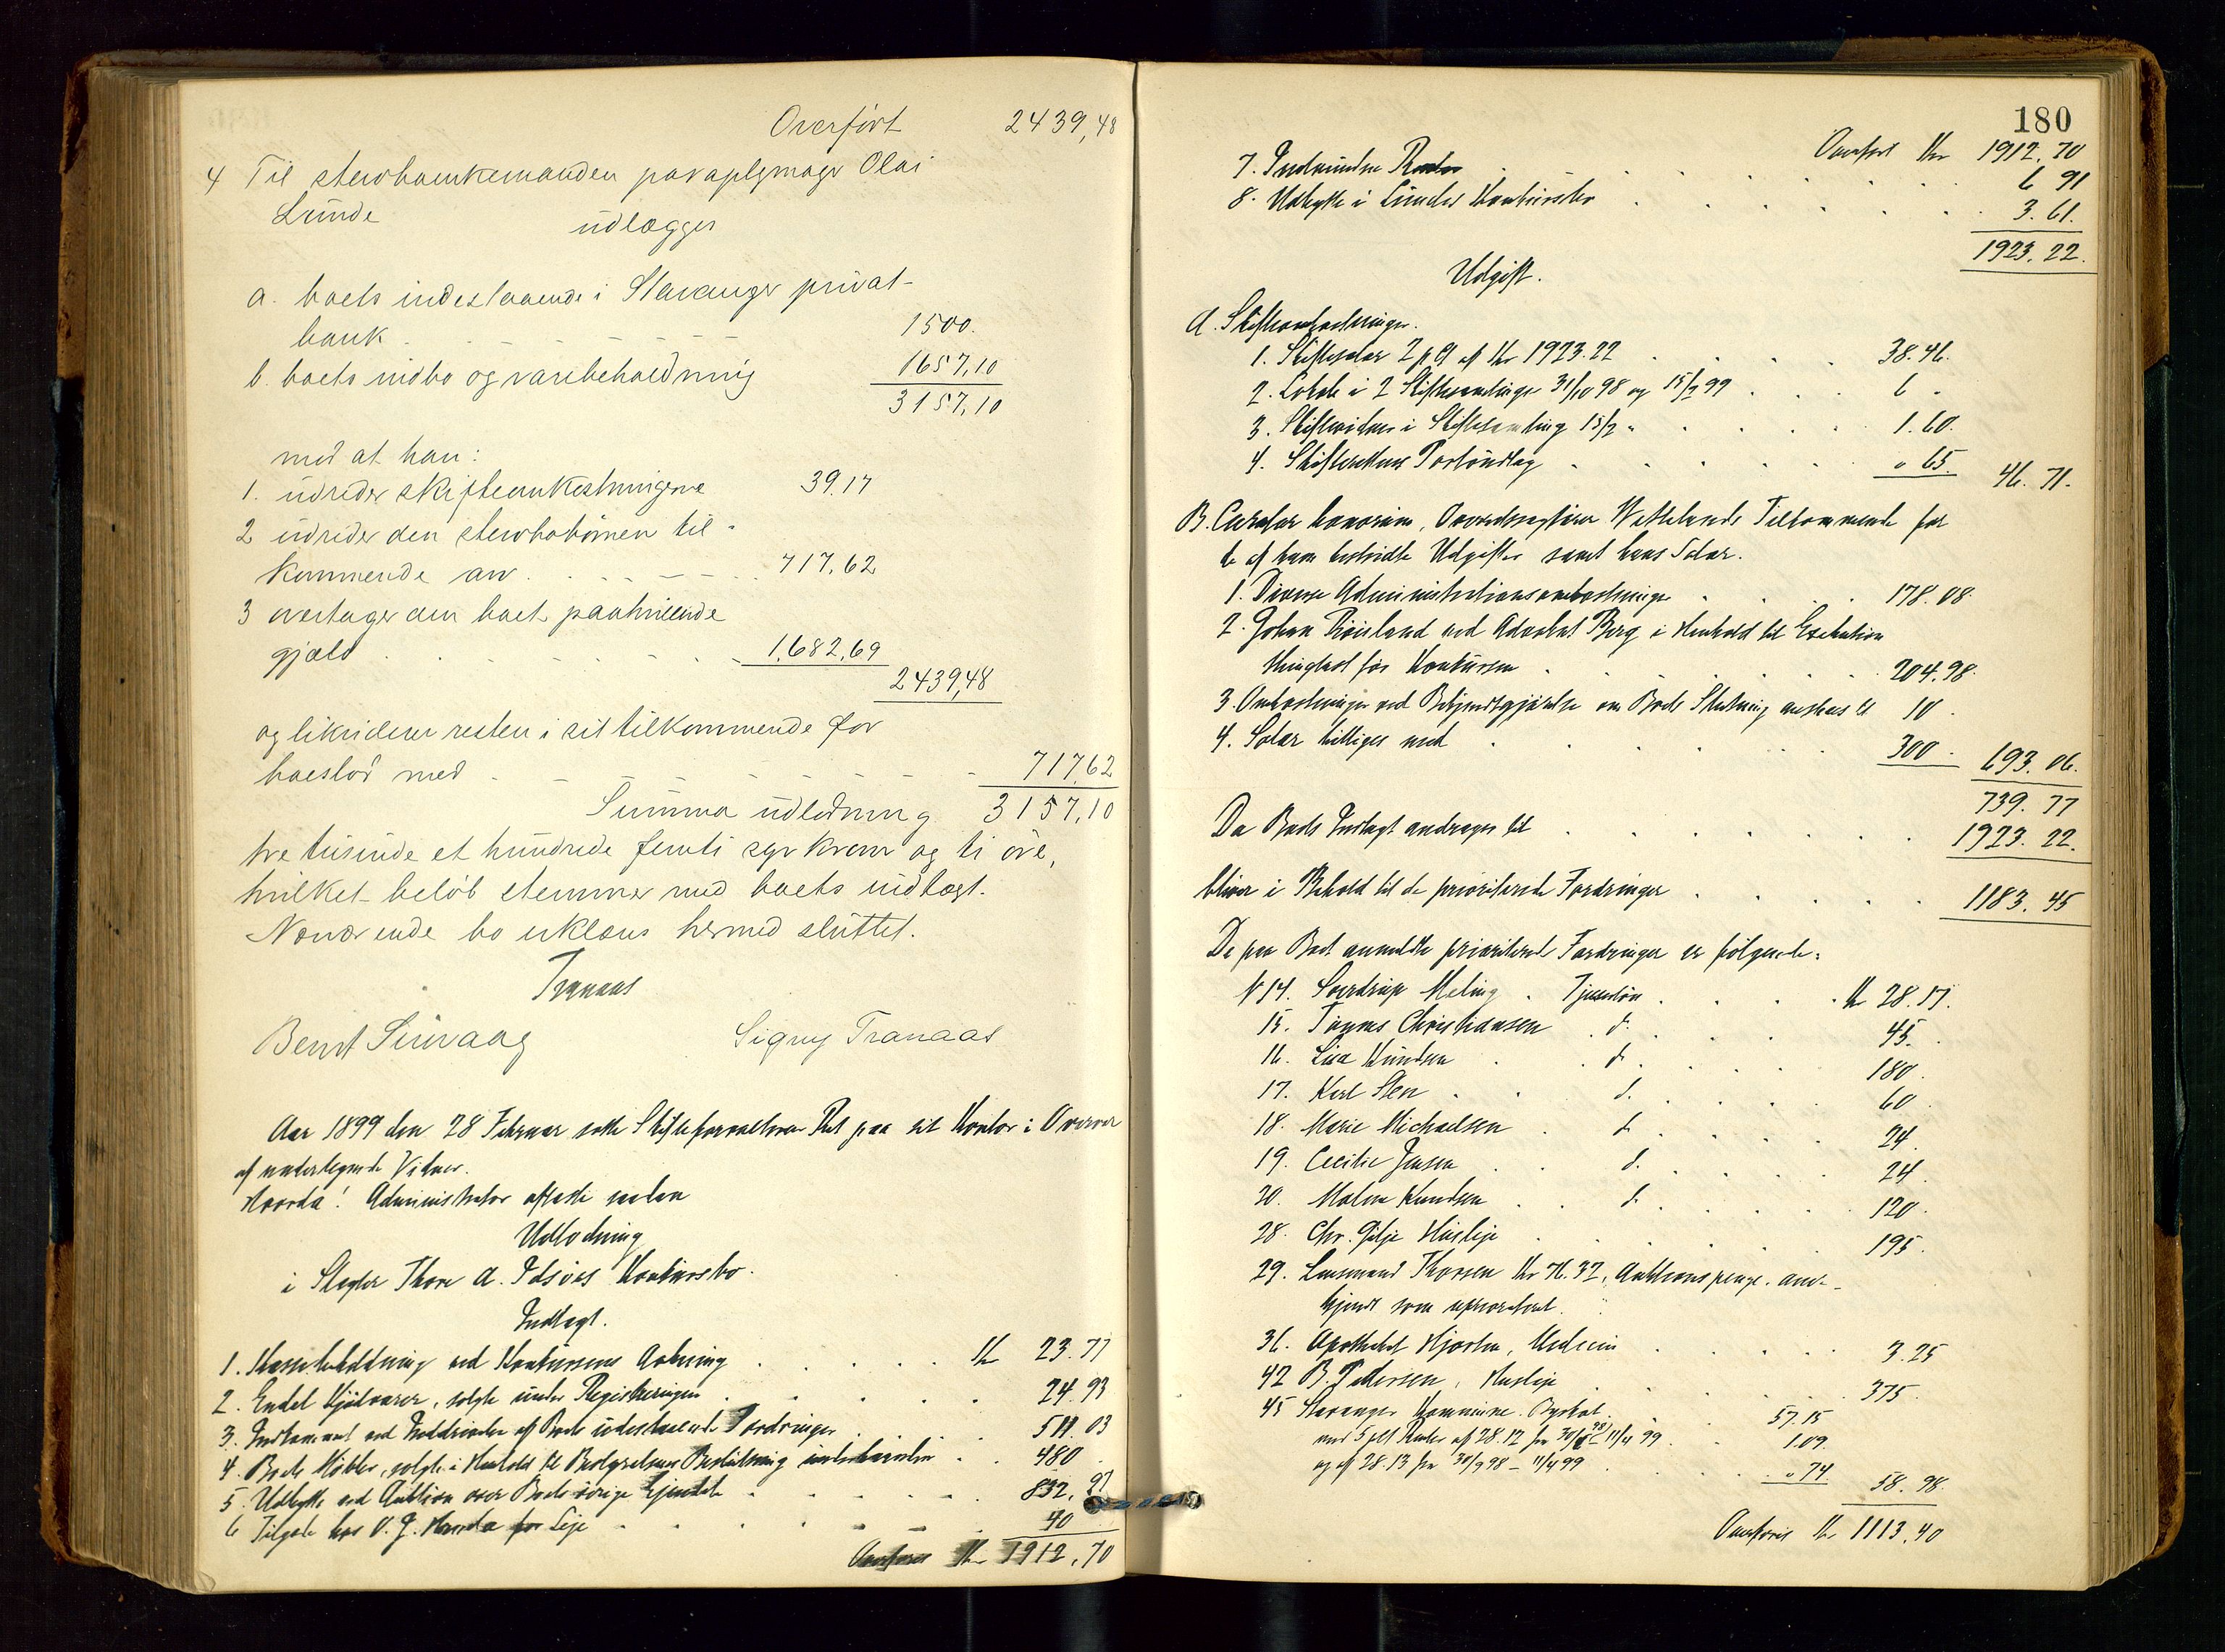 Overført 2439,48
4 Til stervboenkemanden paraplymager Olai
Lunde udlægges
a. boets indestaaende i Stavanger privat-
bank 1500.
b. boets indbo og varebeholdning 1657,10
3157,10
mod at han:
1. udreder skifteomkostningerne 39.17
2 udreder den stervbobørnen til-
kommende arv 717,62
3 overtager den boet paahvilende
gjæld 1,682,69
2439,48
og likviderer resten i sit tilkommende for
boeslod med 717,62
Summa udlodning 3157,10
tre tusinde et hundrede femti syv kroner og ti øre,
hvilket beløb stemmer med boets indtægt.
Nærværende bo erklæres hermed sluttet.
Tranaas
Bernt Sunvaag Signy Tranaas
Aar 1899 den 28 Februar satte Skifteforvalteren Ret paa sit Kontor i Overvær
af undertegnede Vidner.
Hvorda! Administrator afsagde saadan
Udlodning
i Slagter Thore A. Idsøes Konkursbo.
Indtægt.
1. Kassebeholdning ved Konkursens Aabning Kr 23.77
2. Endel Kjødvarer, solgte under Registreringen 24.93
3. Indkommet ved Inddrivelse af Boets udestaaende Fordringer 511.03
4. Boets Møbler, solgte i Henhold til Bestyrelsens Beslutning underhaanden 480
5. Udbytte ved Auktion over Boets øvrige Ejendele 832.97
6 Tilgode hos O. G. Hvorda for Leje 40
Overføres Kr 1912,70
180
Overført Kr 1912.70
7. Indvundne Renter 6 91
8. Udbytte i Lundes Konkursbo 3.61.
1923.22.
Udgift.
A. Skifteomkostninger.
1. Skiftesalær 2 pCt af Kr 1923.22 38.46.
2. Lokale i 2 Skiftesamlinger 31/10 98 og 15/2 99 6 .
3. Skiftevidner i Skiftesamling 15/2 " 1.60.
4. Skifterettens Portoudlæg " 65. 46.71.
B. Curator bonorum, Overretssagfører Vettelands Tilkommende for
de af ham bestridte Udgifter samt hans Salær.
1. Diverse Administrationsomkostninger 178.08.
2. Johan Røisland ved Advokat Berg i Henhold til Exekution
thinglæst før Konkursen 204.98.
3. Omkostninger ved Bekjendtgjørelse om Boets Slutning anslaaes til 10 .
4. Salær billiges med 300 - 693.06.
739.77
Da Boets Indtægt andrager til 1923.22.
bliver i Behold til de prioriterede Fordringer 1183.45
De paa Boet anmeldte prioriterede Fordringer er følgende:
N 14. Sverdrup Meling. Tjenerløn Kr 28.17.
15. Tønnes Christiansen d. 45.
16. Lisa Knudsen d. 180.
17. Karl Sten d. 60
18. Marie Michaelsen d. 24.
19. Cecilie Jensen d. 24.
20. Malene Knudsen d. 120.
28. Chr. Gilje Husleje 195.
29. Lensmand Thorsen Kr 76.37, Auktionspenge, aner-
kjendt som uprioriteret.
36. Apotheker Hjorth, Medicin 3.25
42 B. Pedersen, Husleje 375.
45 Stavanger Kommune. Byskat 57.15
med 5 pCt Renter af 28.12 fra 30/6 98 - 11/4 99 1.09.
og af 28.13 fra 30/9 98 - 11/4 99 " 74 58.98.
Overføres Kr 1113,40